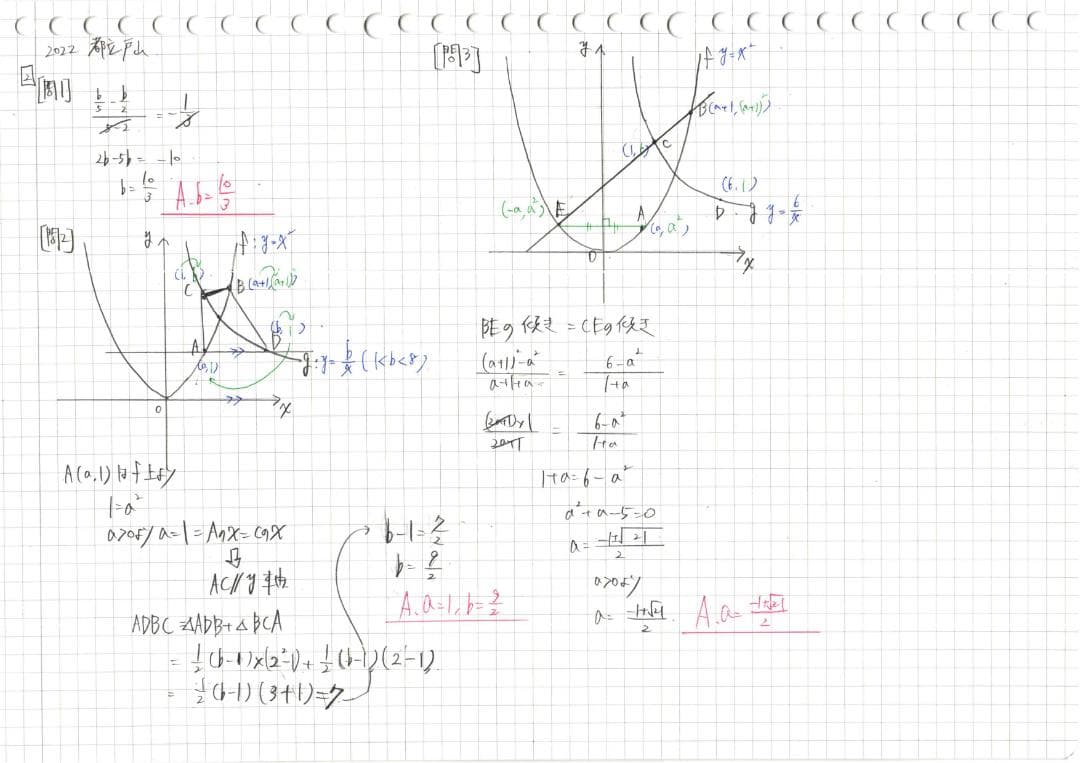 2022 都立戸山
2
[問1]
b/5 - b/2 / 5-2 = -1/3
2b-5b = -10
b = 10/3
A. b = 10/3
[問2]
y
f: y=x²
(1, b)
C
B(a+1, (a+1)²)
(b, 1)
A
D
(a, 1)
g: y = b/x (1<b<8)
O
x
A(a,1)はf上より
1=a²
a>0より a=1=Aのx=Cのx
⇓
AC // y軸
ADBC = △ADB + △BCA
= 1/2(b-1)×(2²-1) + 1/2(b-1)(2-1)
= 1/2(b-1)(3+1) = 7
b-1 = 7/2
b = 9/2
A. a=1, b=9/2
[問3]
y
f y=x²
B(a+1, (a+1)²)
(1, 6)
C
(6, 1)
(-a, a²)
E
A
D
g y = 6/x
(a, a²)
O
x
BEの傾き = CEの傾き
(a+1)²-a² / a+1+a = 6-a² / 1+a
(2a+1)×1 / 2a+1 = 6-a² / 1+a
1+a = 6-a²
a²+a-5=0
a = -1±√21 / 2
a>0より
a = -1+√21 / 2
A. a = -1+√21 / 2